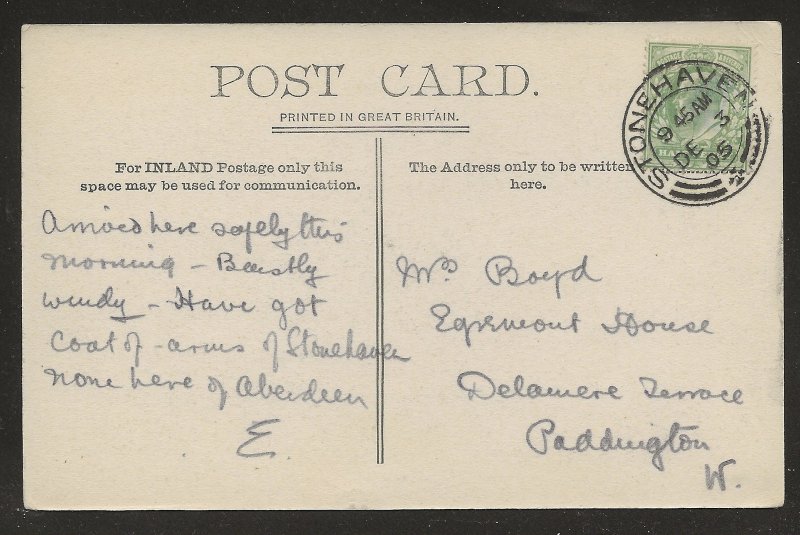 POST CARD.
PRINTED IN GREAT BRITAIN.
For INLAND Postage only this
space may be used for communication.
The Address only to be written
here.
STONEHAVEN
9 45 AM
DE 3
05
Arrived here safely this
morning - Beastly
windy - Have got
coat of-arms of Stonehaven
none here of Aberdeen
E.
Mrs Boyd
Egremont House
Delamere Terrace
Paddington
W.